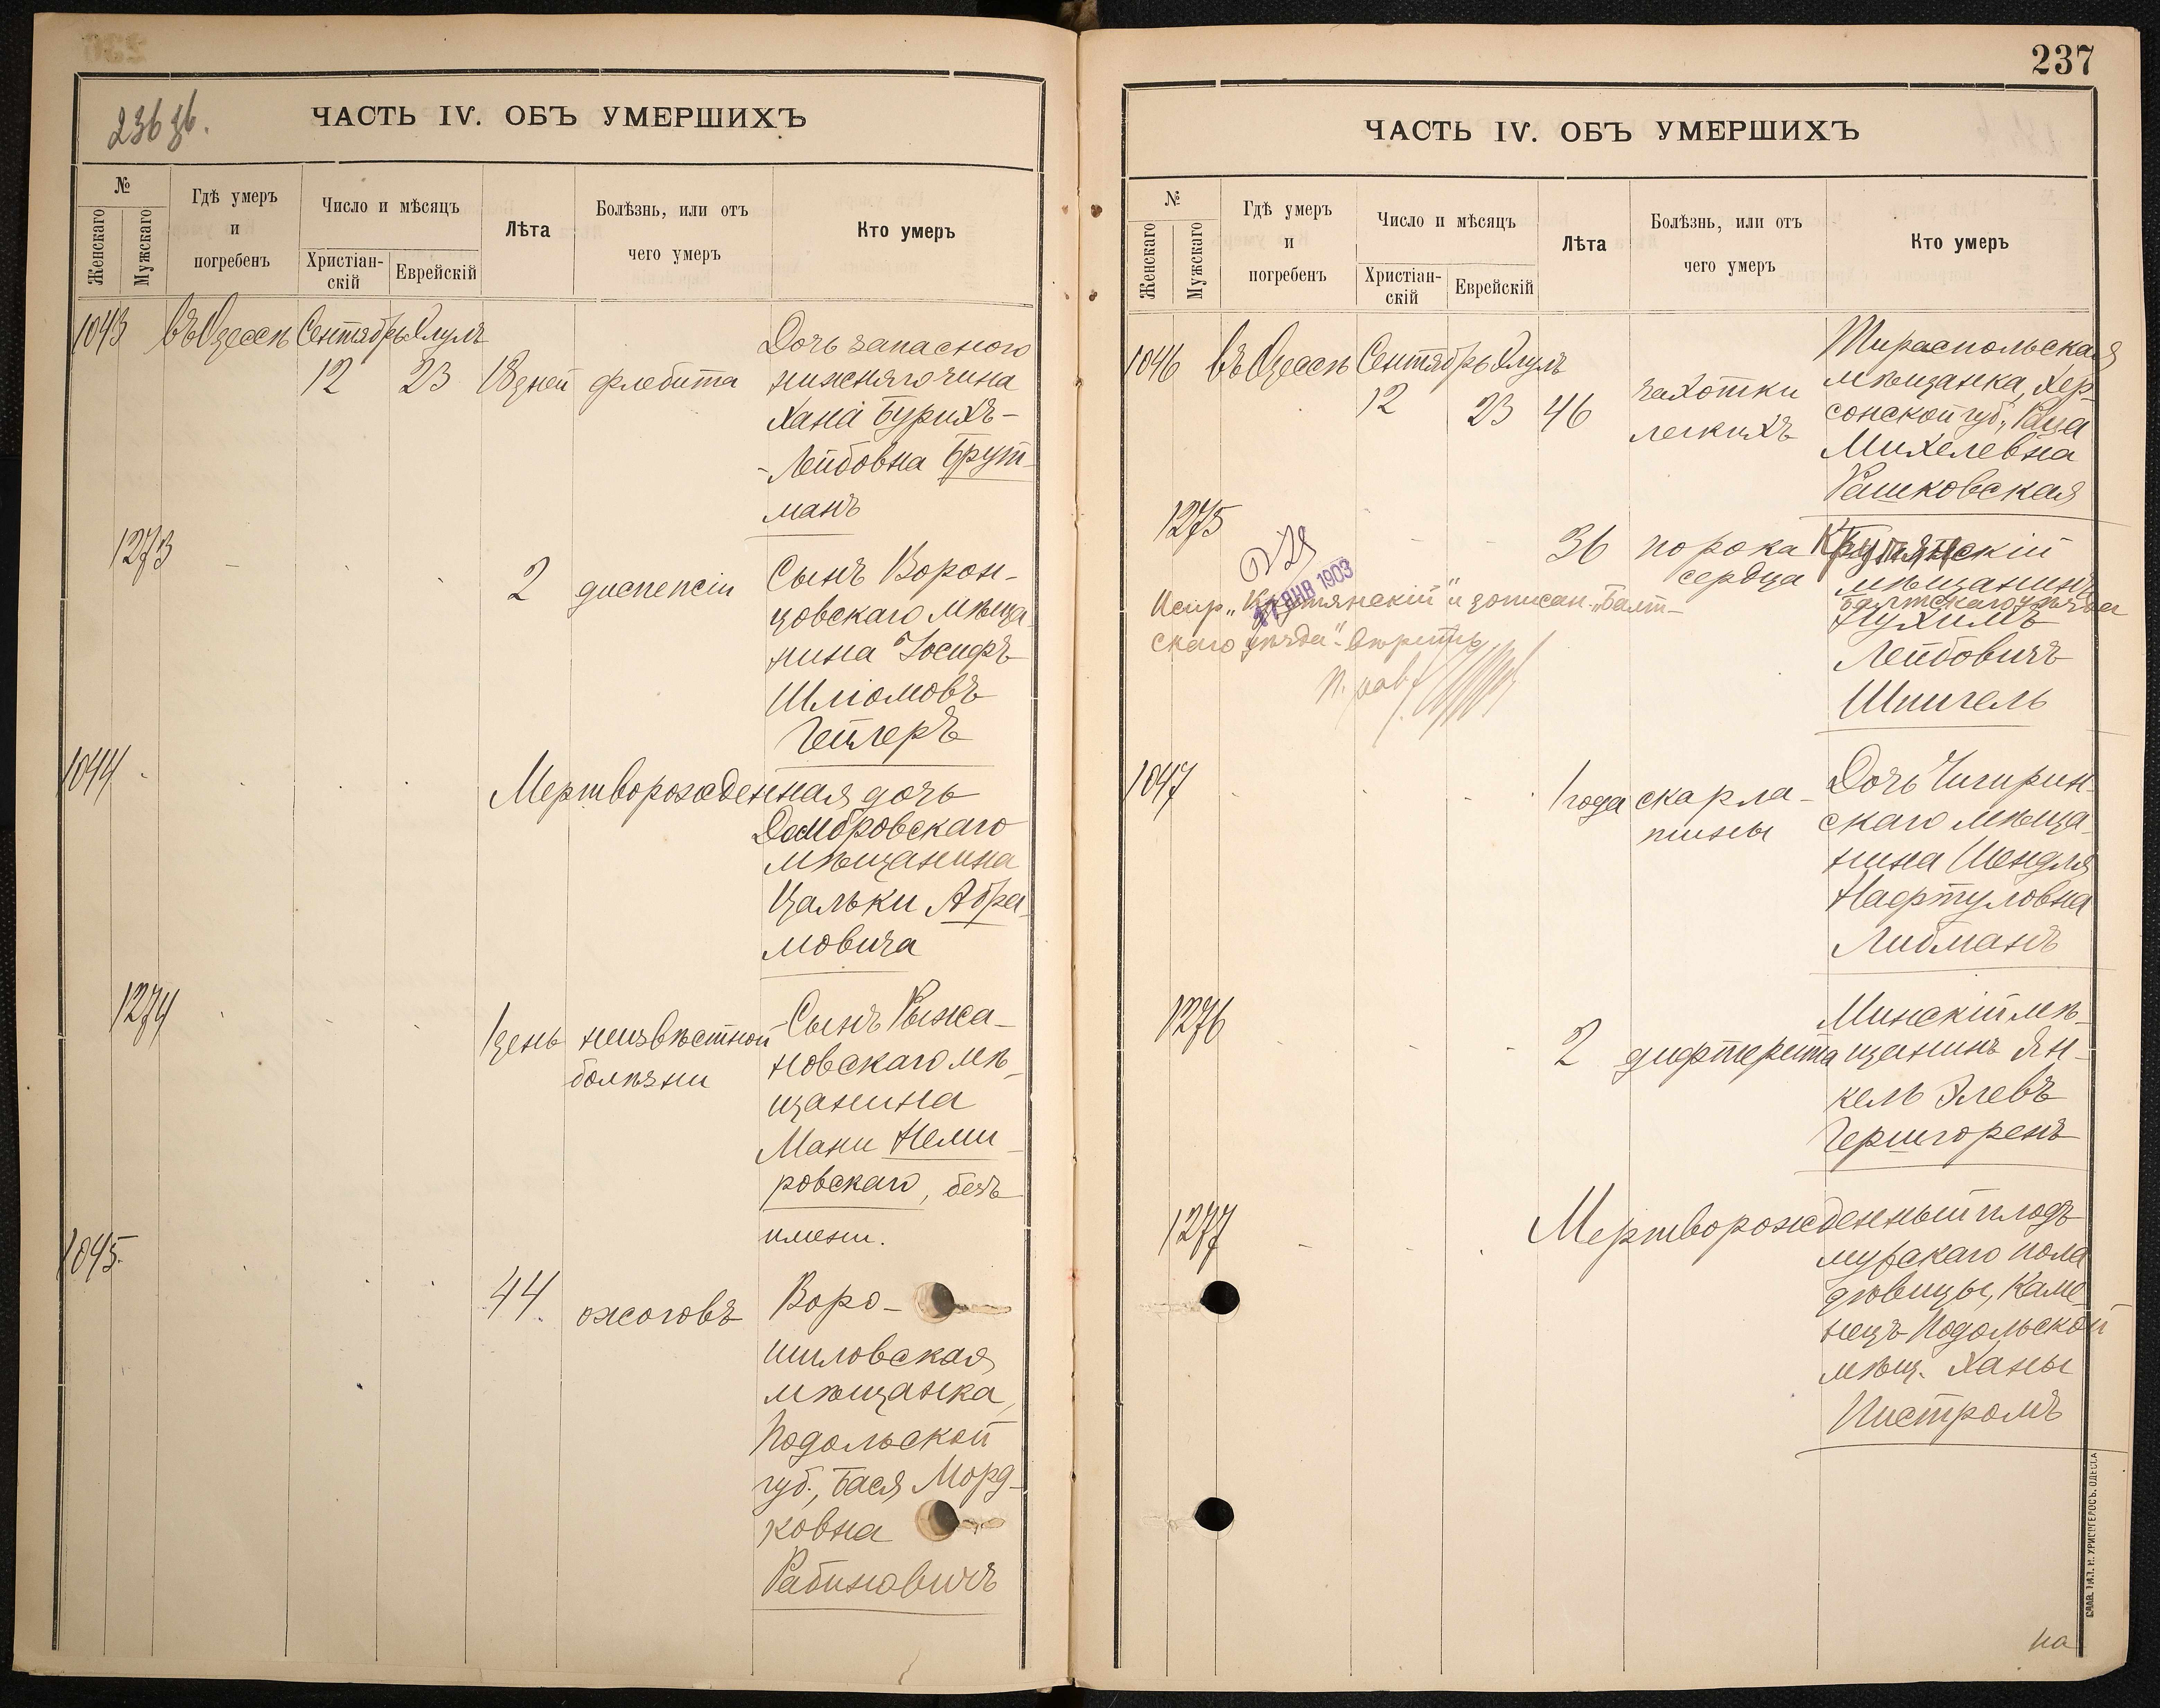 236 зв.
ЧАСТЬ IV. ОБЪ УМЕРШИХЪ
№
Женскаго
Мужскаго
Гдѣ умеръ
и
погребенъ
Число и мѣсяцъ
Христіан-
скій
Еврейскій
Лѣта
Болѣзнь, или отъ
чего умеръ
Кто умеръ
1043 въ Одессѣ Сентябрь Элулъ
12 23 18 дней флебита
Дочь запаснаго
нижняго чина
Хана Бурихъ-
-Лейбовна Брут-
манъ
1273
2 диспепсіи
Сынъ Ворон-
цовскаго мѣща-
нина Іосифъ
Шліомовъ
Гетлеръ
1044
Мертворожденная дочь
Домбровскаго
мѣщанина
Цальки Абра-
мовича
1274
1 день неизвѣстной
болѣзни
Сынъ Рыжа-
новскаго мѣ-
щанина
Мани Неми-
ровскаго, безъ
имени.
1045
44 ожоговъ
Воро-
шиловская
мѣщанка,
Подольской
губ., Бася Морд-
ковна
Рабиновичъ
237
ЧАСТЬ IV. ОБЪ УМЕРШИХЪ
№
Женскаго
Мужскаго
Гдѣ умеръ
и
погребенъ
Число и мѣсяцъ
Христіан-
скій
Еврейскій
Лѣта
Болѣзнь, или отъ
чего умеръ
Кто умеръ
1046 въ Одессѣ Сентябрь Элулъ
12 23 46 чахотки
легкихъ
Тираспольская
мѣщанка, Хер-
сонской губ.,
Михелевна
Рашковская
1275
36 порока
сердца
мѣщанинъ
Балтскаго уѣзда
Нухимъ
Лейбовичъ
Шпигель
17 ЯНВ 1903
Испр. и дописан. „Балт-
скаго уѣзда". Вѣрить
П. рав.
1047
1 года скарла-
тины
Дочь Чигирин-
скаго мѣща-
нина Шендля
Нафтуловна
Либманъ
1276
2 дифтерита
Минскій мѣ-
щанинъ Ян-
кель Элевъ
Геришгоренъ
1277
Мертворожденный плодъ
мужскаго пола
дѣвицы, Каме-
нецъ-Подольской
мѣщ. Ханы
Пистромъ
СЛАВ. ТИП. Н. ХРИСОГЕЛОСЪ. ОДЕССА
на